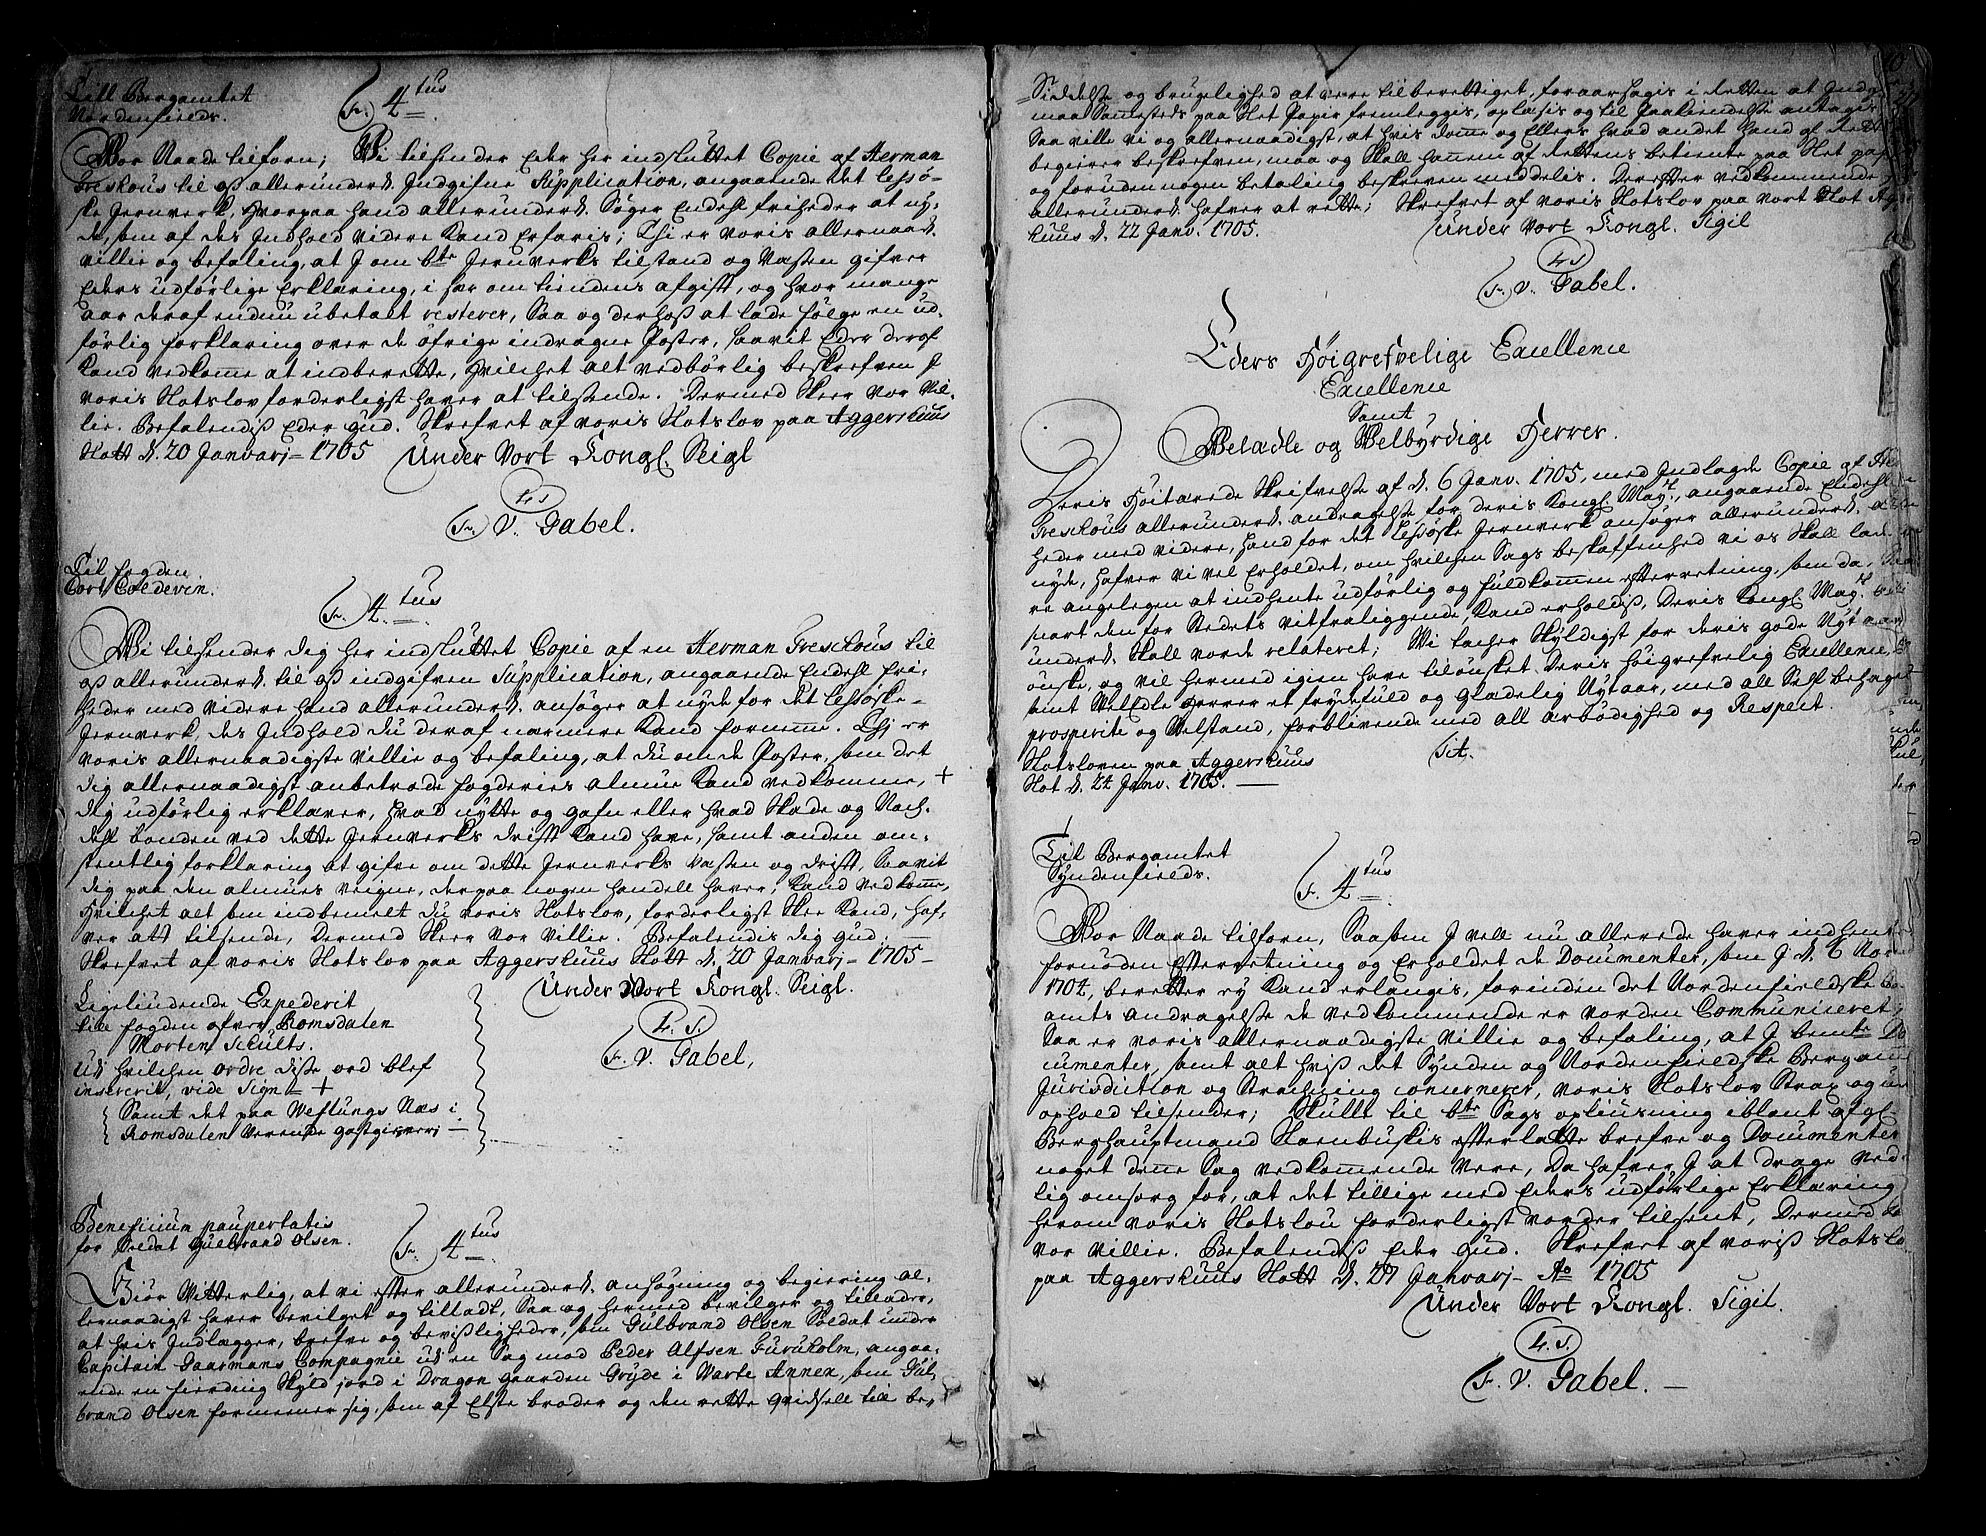 Till Bergamtet
Nordenfields.
Fr. 4tus
Vor Naade tilforn; Wi tilsender Eder her indsluttet Copie af Herman
Treschous til oss allerunderd. Indgifne Supplication, angaaende det Lessø-
ske Jernverk, hvorpaa hand allerunderd. søger Endehl friheder at ny-
de, som af des Indhold videre kand Erfaris; Thi er voris allernaad.
villie og befaling, at I om bte Jernverks tilstand og væsen gifver
Eders udførlige Erklæring, i sær om tiendens afgift, og hvor mange
aar deraf endnu ubetalt resterer, Saa og derhoss at lade følge en ud-
førlig forklaring over de øfrige indragne Poster, saavit Eder deraf
kand vedkomme at indberette, hvilchet alt vedbørlig beskrefven I
voris Slotslov forderligst haver at tilsende. Dermed skeer vor vil-
lie. Befalendis Eder Gud. Skrefvet af voris Slotslov paa Aggershuus
Slott d. 20 Januarj 1705 Under Vort Kongl. Seigl
L S
Fr. V. Gabel.
Til fogden
Cort Coldevin.
Fr. 4tus
Wi tilsender dig her indsluttet Copie af en Herman Treschous til
oss allerunderd. til oss indgifven Supplication, angaaende Endehl fri-
heder med videre hand allerunderd. ansøger at nyde for det Lessøske-
Jernverk, des Indhold du deraf nærmere kand fornemme. Thj er
voris allernaadigste villie og befaling, at du om de Poster, som det
dig allernaadigst anbetroede fogderies almue kand vedkomme, +
dig udførlig erklærer, hvad nytte og gafn eller hvad skade og Nach-
deel bonden ved dette Jernverks drift kand have, samt anden om-
stentlig forklaring at gifve om dette Jernverks væsen og drift, saavit
dig paa den almues veigne, der paa nogen handell haver, kand vedkomme,
hvilchet alt som indbemelt du voris Slotslov, forderligst skee kand, haf-
ver att tilsende, Dermed skeer vor villie. Befalendis dig Gud.
Skrefvet af voris Slotslov paa Aggershuus Slott d. 20 Januarj 1705
Under Vort Kongl. Seigl.
L. S.
Fr. V. Gabel,
Ligelindende Expederit
till fogden ofver Romsdalen
Morten Schults.
Udi hvilchen ordre disse ord blef
insererit, vide Sign +
Samt det paa Westungs Næs i
Romsdalen verende gastgiverj
Beneficium paupertatis
for Soldat Gulbrand Olsen.
Fr. 4tus
Giør Vitterlig, at vi efter allerunderd. ansøgning og begiering al-
lernaadigst haver bevilget og tilladt, Saa og hermed bevilger og tillader,
at hvis Indlægger, brefve og bevisligheder, som Gulbrand Olsen Soldat under
Capitain Gaarmans Compagnie udi en Sag mod Peder Alfsen Furuholm, angaa-
ende en fierding Skyld jord i Dragon gaarden Gryde i Varte Annex, som Gul-
brand Olsen formeener sig, som af Elste broder og den rette Qvidsell till be-
Siddelse og brugelighed at være tilberettiget, foraarsagis i Retten at Indg
maa Samesteds paa slet Papir fremleggis, oplæsis og til Paakiendelse antagis
Saa ville vi og allernaadigst, at hvis domme og Ellers hvad andet hand af Retten
begierer beskrefven, maa og skall hannem af Rettens betiente paa slet pap
og foruden nogen betaling beskreven meddelis. Derefter vedkommende sig
allerunderd. hafver at rette; Skrefvet af voris Slotslov paa Vort Slot Ag
huus d. 22 Janv. 1705. Under Vort Kongl. Sigil
L S
Fr. V. Gabel.
Eders Høigrefvelige Excellence
Excellence
Samt
Velædle og Velbyrdige Herrer.
Deris Høitærede Skrifvelse af d. 6 Janv. 1705, med Indlagde Copie af He
Treschous allerunderd. andragelse for deris Kongl. Mayt., angaaende Endehl
heder med videre, hand for det Lessøske Jernverk ansøger allerunderd. at
nyde, hafver vi vel Erholdet, om hvilchen Sags beskaffenhed vi os skall lad
re angelegen at indhente udførlig og fuldkommen efterretning, som da, Saa
snart den for Stedets vitfraliggende, kand erholdis, Deris Kongl. Mayt.
underd. skall vorde relateret; Wi tacher skyldigst for deris gode Nyt aars
ønske, og vil hermed igien have tilønsket Deris Høigrefvelig Excellence,
samt Vel Edle Herrer et frydefuld og glædelig Nytaar, med all Selfbehage
prosperite og Velstand, forblivende med all ærbødighed og Respect.
Slotsloven paa Aggershuus Tit.
Slot d. 24 Janv. 1705.
Til Bergamtet
Syndenfields.
Fr. 4tus
Vor Naade tilforn, Saasom I vell nu allerede haver indhent
fornøden Efterretning og Erholdet de Documenter, som I d. 6 Nov
1704, beretter ey kand erlangis, forinden det Nordenfieldske B
amts andragelse de vedkommende er vorden Communiceret;
Saa er voris allernaadigste villie og befaling, at I bemte Do
cumenter, samt alt hvis det Synden og Nordenfieldske Bergam
Jurisdiction og Strechning concernerer, voris Slotslov Strax og u
ophold tilsender; Skulle til bte Sags opliusning iblant afg.
Berghauptmand Harnbuskis efterlatte brefve og Documenter
noget denne Sag vedkommende være, Da hafver I at drage ved
lig omsorg for, at det tillige med Eders udførlige Erklæring
herom voris Slotslou forderligst vorder tilsent, Dermed
vor villie. Befalendis Eder Gud. Skrefvet af voriss Slotslo
paa Aggershuus Slott d. 27 Januarj Ao 1705
Under Vort Kongl. Sigil.
L. S.
Fr. V. Gabel.